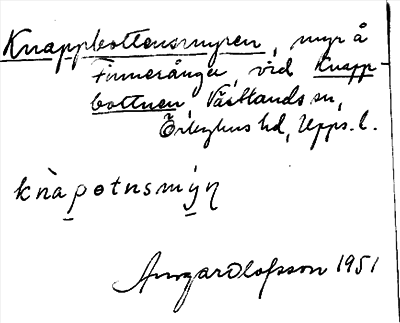 Knappbottensmyren, myr å
Finnerånger, vid Knapp-
bottnen, Västlands sn,
Örbyhus hd, Upps. l.
knàpotnsmýn
Ingar Olofsson 1951